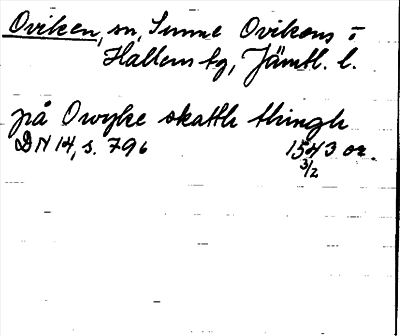 Oviken, sn, Sunne Ovikens o
Hallens tg, Jämtl. l.
på Owyke skatth thingh
DN 14, s. 796 1543 or.
3/2